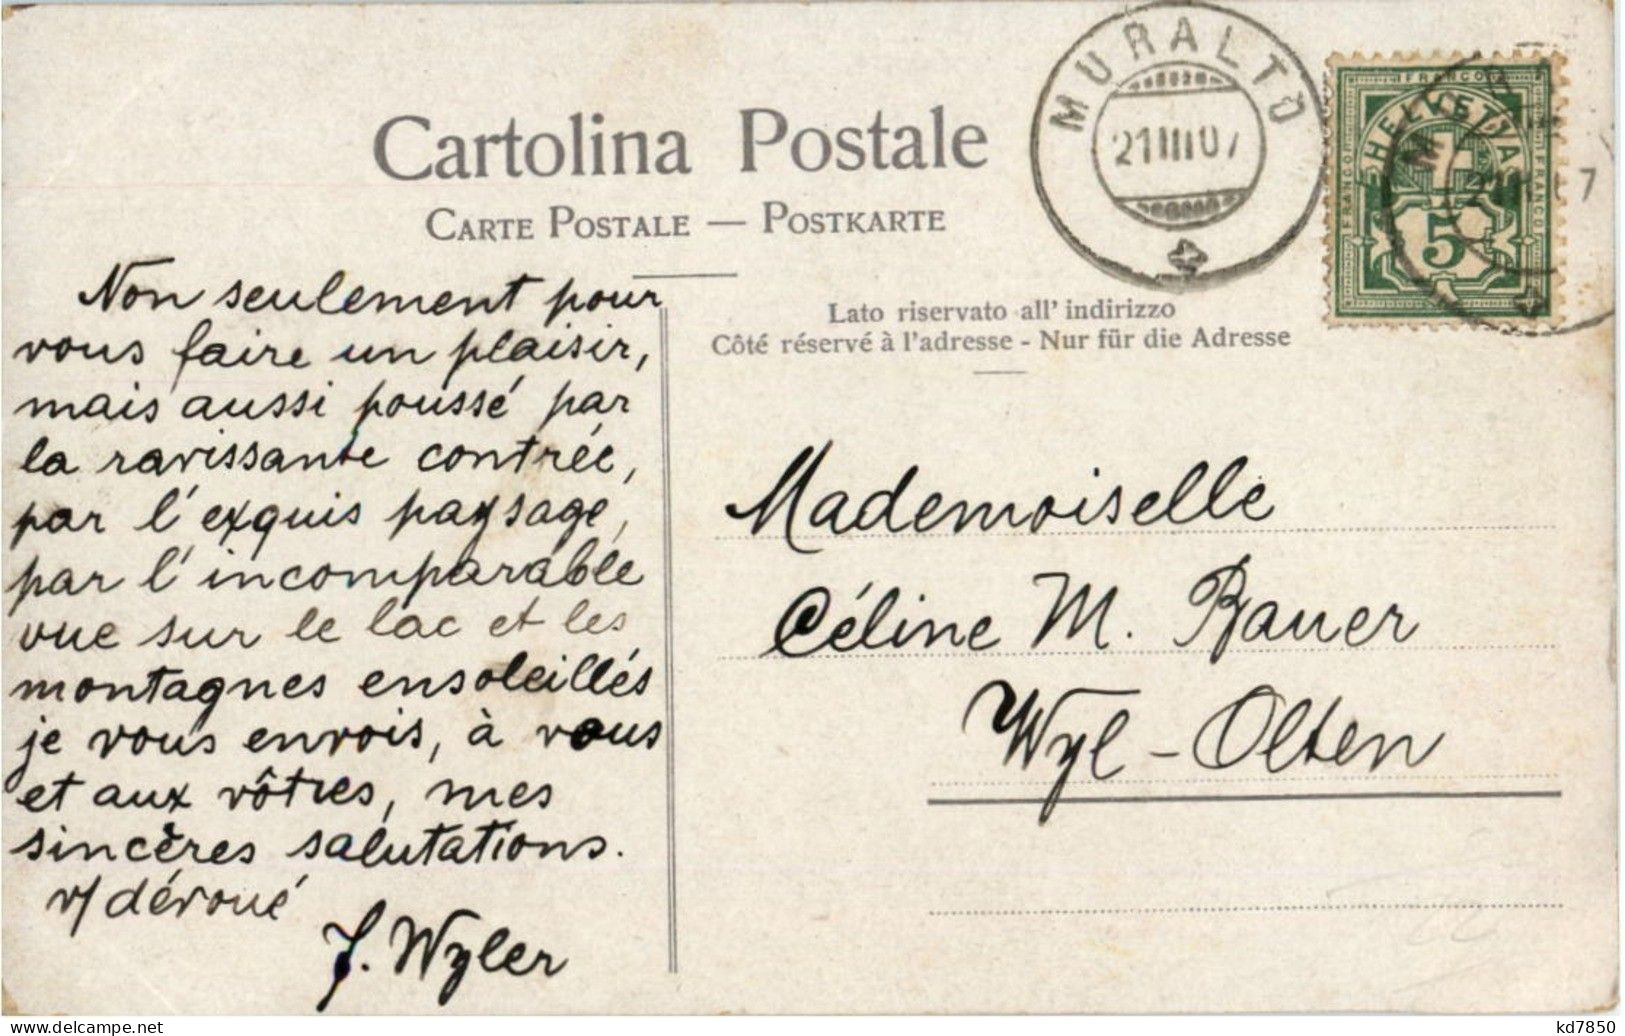 MURALTO
21 III 07
FRANCO
HELVETIA
FRANCO
FRANCO
5
7
Cartolina Postale
CARTE POSTALE — POSTKARTE
Lato riservato all' indirizzo
Côté réservé à l'adresse - Nur für die Adresse
Non seulement pour
vous faire un plaisir,
mais aussi poussé par
la ravissante contrée,
par l'exquis paysage,
par l'incomparable
vue sur le lac et les
montagnes ensoleillés
je vous envois, à vous
et aux vôtres, mes
sincères salutations.
v/ dévoué
J. Wyler
Mademoiselle
Céline M. Bauer
Wyl - Olten
kd7850